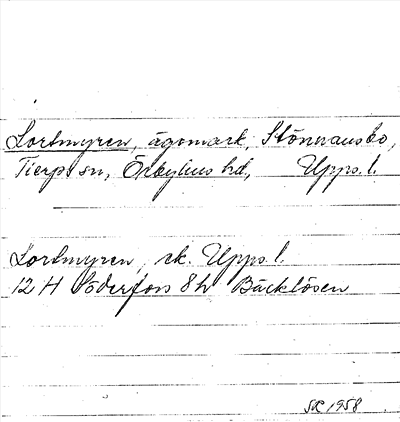 Lortmyren, ägomark, Stönnansbo,
Tierps sn, Örbyhus hd, Upps. l.
Lortmyren, ek. Upps. l.
12 H Söderfors 8 h Bäcklösen
1958